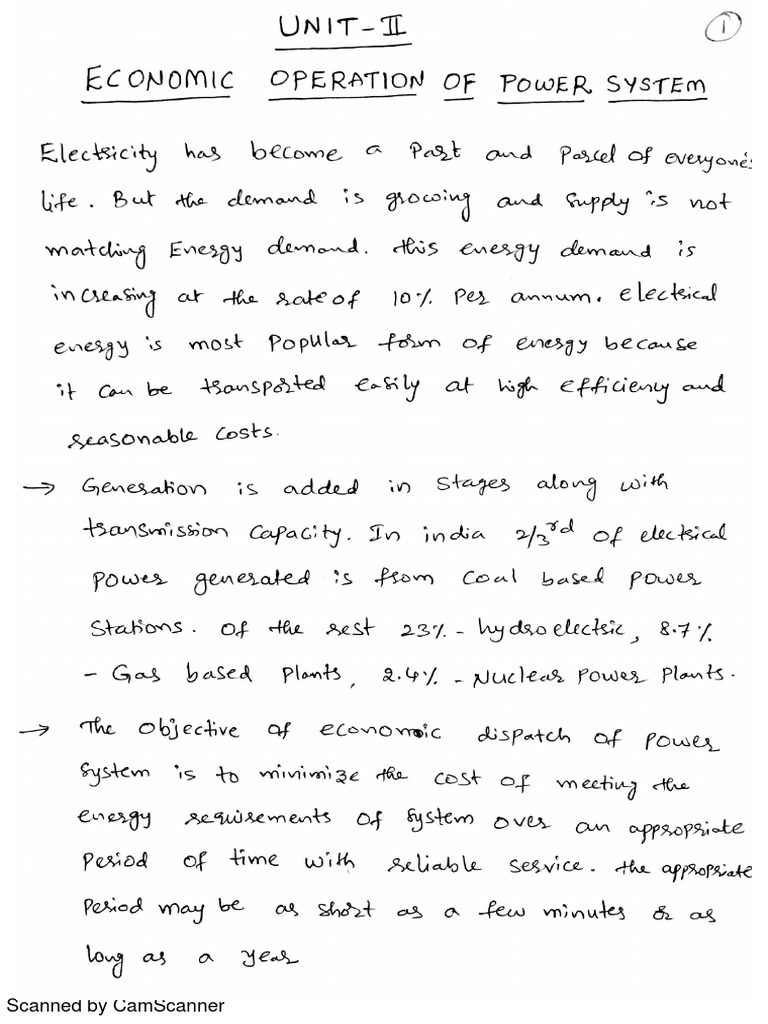 UNIT-II
1
ECONOMIC OPERATION OF POWER SYSTEM
Electricity has become a Part and Parcel of everyone's
life. But the demand is growing and supply is not
matching Energy demand. this energy demand is
increasing at the rate of 10% Per annum. electrical
energy is most Popular form of energy because
it can be transported easily at high efficiency and
reasonable costs.
→ Generation is added in stages along with
transmission capacity. In india 2/3rd of electrical
power generated is from coal based power
stations. Of the rest 23% - hydroelectric, 8.7%
- Gas based Plants, 2.4% - Nuclear Power Plants.
→ The objective of economic dispatch of power
system is to minimize the cost of meeting the
energy requirements of system over an appropriate
Period of time with reliable service. the appropriate
Period may be as short as a few minutes & as
long as a year
Scanned by CamScanner